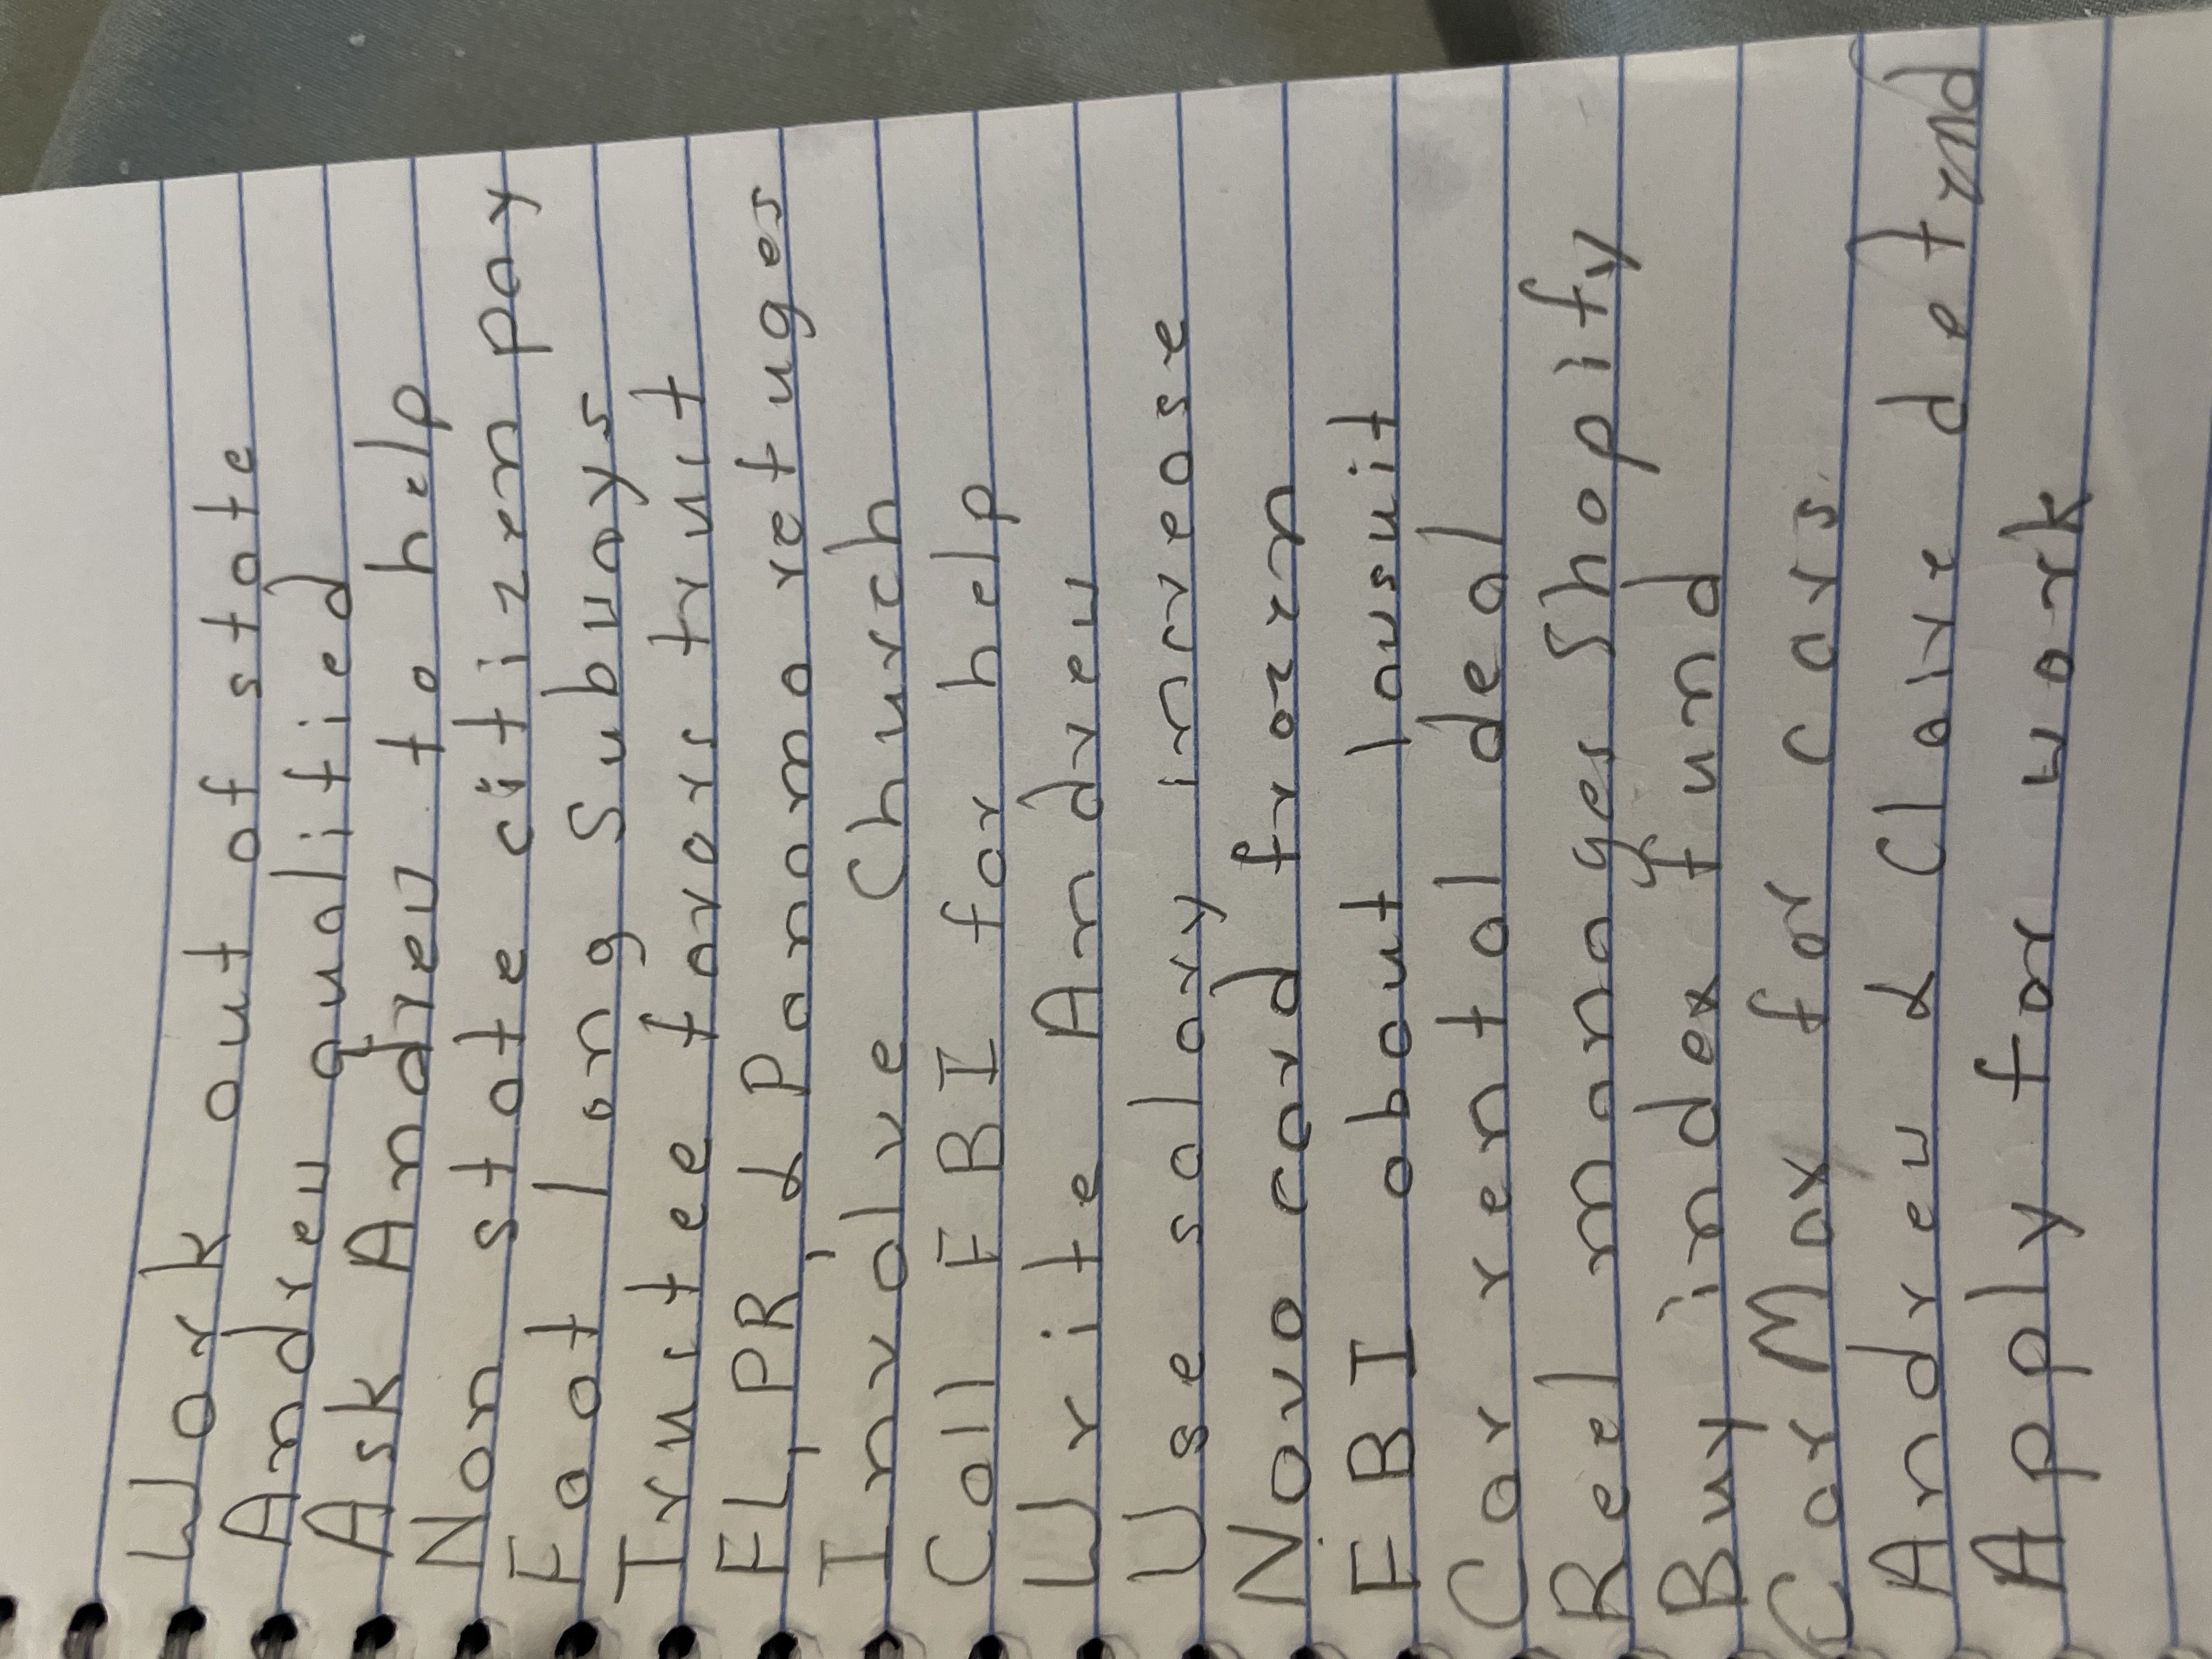 Work out of state
Andrew qualified
Ask Andrew to help
Non state citizen pay
Eat long Subways
Trustee favors trust
FL, PR, & Panama refuges
Involve Church
Call FBI for help
Write Andrew
Use salary increase
Novo card frozen
FBI about lawsuit
Car rental deal
Reel manages Shopify
Buy index fund
CarMax for cars
Andrew & Claire det
Apply for work